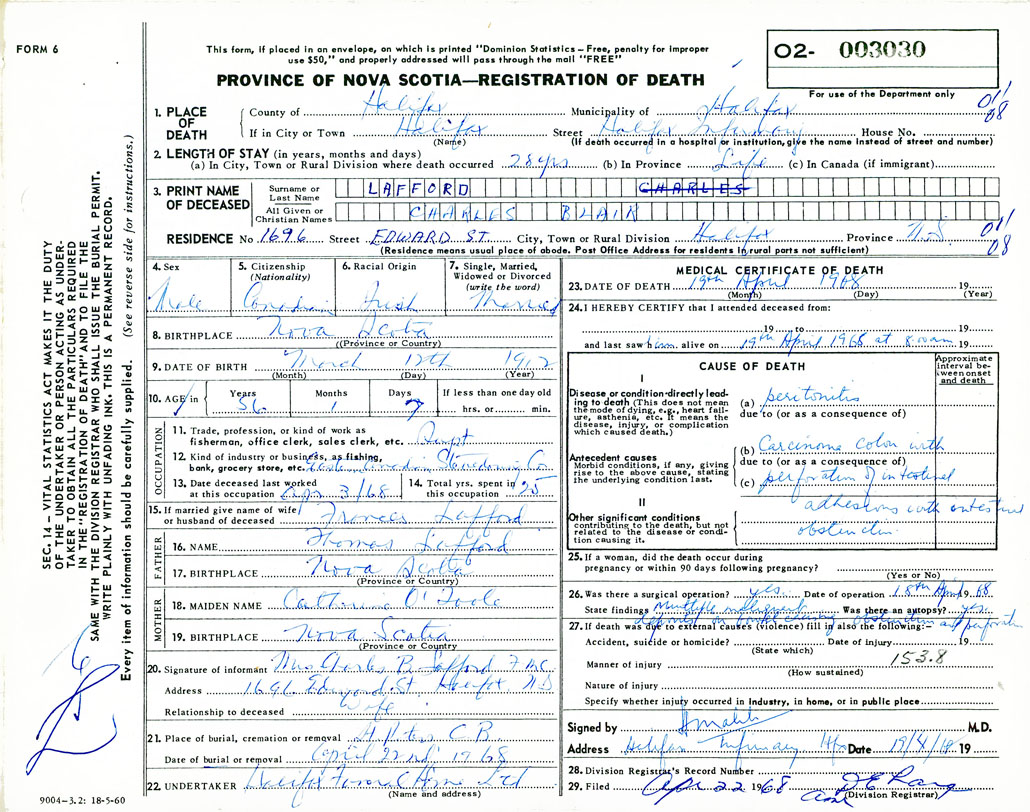 FORM 6
This form, if placed in an envelope, on which is printed "Dominion Statistics – Free, penalty for improper
use $50," and properly addressed will pass through the mail "FREE"
PROVINCE OF NOVA SCOTIA—REGISTRATION OF DEATH
O2- 003030
For use of the Department only
SEC. 14 – VITAL STATISTICS ACT MAKES IT THE DUTY
OF THE UNDERTAKER OR PERSON ACTING AS UNDER-
TAKER TO OBTAIN ALL THE PARTICULARS REQUIRED
IN THE "REGISTRATION OF DEATH" AND TO FILE THE
SAME WITH THE DIVISION REGISTRAR WHO SHALL ISSUE THE BURIAL PERMIT.
WRITE PLAINLY WITH UNFADING INK. THIS IS A PERMANENT RECORD.
Every item of information should be carefully supplied. (See reverse side for instructions.)
1. PLACE OF DEATH County of Halifax Municipality of Halifax 01/08
If in City or Town Halifax Street Halifax Infirmary House No.
(Name) (If death occurred in a hospital or institution, give the name instead of street and number)
2. LENGTH OF STAY (in years, months and days)
(a) In City, Town or Rural Division where death occurred 28 yrs (b) In Province Life (c) In Canada (if immigrant)
3. PRINT NAME OF DECEASED Surname or Last Name LAFFORD CHARLES
All Given or Christian Names CHARLES BLAIR
RESIDENCE No 1696 Street EDWARD ST. City, Town or Rural Division Halifax Province N.S 01/08
(Residence means usual place of abode. Post Office Address for residents in rural parts not sufficient)
4. Sex Male
5. Citizenship (Nationality) Canadian
6. Racial Origin Irish
7. Single, Married, Widowed or Divorced (write the word) Married
8. BIRTHPLACE Nova Scotia
(Province or Country)
9. DATE OF BIRTH March 12th 1912
(Month) (Day) (Year)
10. AGE in Years 56 Months 1 Days 7 If less than one day old hrs. or min.
OCCUPATION
11. Trade, profession, or kind of work as
fisherman, office clerk, sales clerk, etc.
12. Kind of industry or business, as fishing,
bank, grocery store, etc. Canadian Stevedoring Co
13. Date deceased last worked at this occupation Apr 3/68
14. Total yrs. spent in this occupation 25
15. If married give name of wife or husband of deceased Frances Lafford
FATHER
16. NAME Thomas Lafford
17. BIRTHPLACE Nova Scotia
(Province or Country)
MOTHER
18. MAIDEN NAME Catherine O'Toole
19. BIRTHPLACE Nova Scotia
(Province or Country
20. Signature of informant Mrs Charles B. Lafford
Address 1696 Edward St Halifax N.S
Relationship to deceased Wife
21. Place of burial, cremation or removal C.B.
Date of burial or removal April 22nd 1968
22. UNDERTAKER Halifax Funeral Home Ltd
(Name and address)
9004–3.2: 18-5-60
MEDICAL CERTIFICATE OF DEATH
23. DATE OF DEATH 19th April 1968 19
(Month) (Day) (Year)
24. I HEREBY CERTIFY that I attended deceased from:
19 to 19
and last saw him alive on 19th April 1968 at 8:00am 19
CAUSE OF DEATH
Approximate interval between onset and death
I
Disease or condition directly lead-
ing to death (This does not mean
the mode of dying, e.g., heart fail-
ure, asthenia, etc. It means the
disease, injury, or complication
which caused death.)
(a) peritonitis
due to (or as a consequence of)
Antecedent causes
Morbid conditions, if any, giving
rise to the above cause, stating
the underlying condition last.
(b) Carcinoma colon with
due to (or as a consequence of)
(c) perforation of intestinal
II
Other significant conditions
contributing to the death, but not
related to the disease or condi-
tion causing it.
adhesions with intestinal
obstruction
25. If a woman, did the death occur during
pregnancy or within 90 days following pregnancy?
(Yes or No)
26. Was there a surgical operation? yes. Date of operation 18th April 1968
State findings Multiple malignant Was there an autopsy? yes.
deposits on bowel causing obstruction and
27. If death was due to external causes (violence) fill in also the following:–
Accident, suicide or homicide? Date of injury 19
(State which)
Manner of injury 153.8
(How sustained)
Nature of injury
Specify whether injury occurred in industry, in home, or in public place
Signed by M.D.
Address Halifax Infirmary Hfx Date 19/4/68 19
28. Division Registrar's Record Number
29. Filed Apr 22 1968
(Division Registrar)